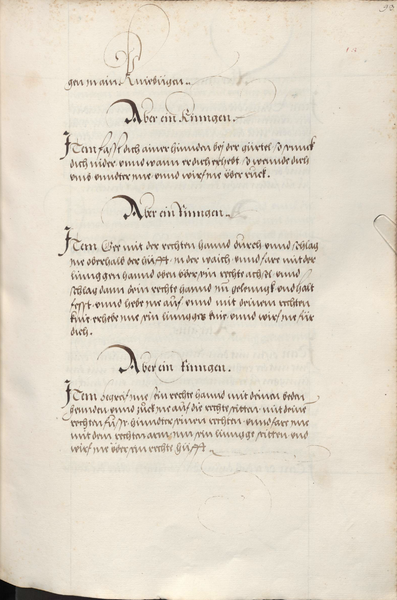 93
gen in ain Kniebügen.
Aber ein Ringen.
Item fasst dich ainer hinnden bej der gürtel so truckh
dich nider vnnd wann er dich erhebt so wennde dich
vmb vnndter ine vnnd wirf ine über ruck.
Aber ein Ringen.
Item Gee mit der rechten hannd durch vnnd schlag
ine oberhalb der hüfft in der waich vnnd fare mit der
linnggen hannd oben über sein rechte achsl vnnd
schlag dann dein rechte hannd in gelennckh vnd halt
fesst vnnd hebe ine auf vnnd mit deinem rechten
knie erhebe ine sein linnggs knie vnnd wirf ine für
dich.
Aber ein Ringen.
Item begreif ine sein rechte hannd mit deinen beden
hennden vnnd zuck ine auf die rechte seitten mit deine
rechten fuß hinndter seinen rechten vnnd fare ine
mit dem rechten arm vmb sein linngge seitten vnd
wirf ine über sein rechte hüfft.